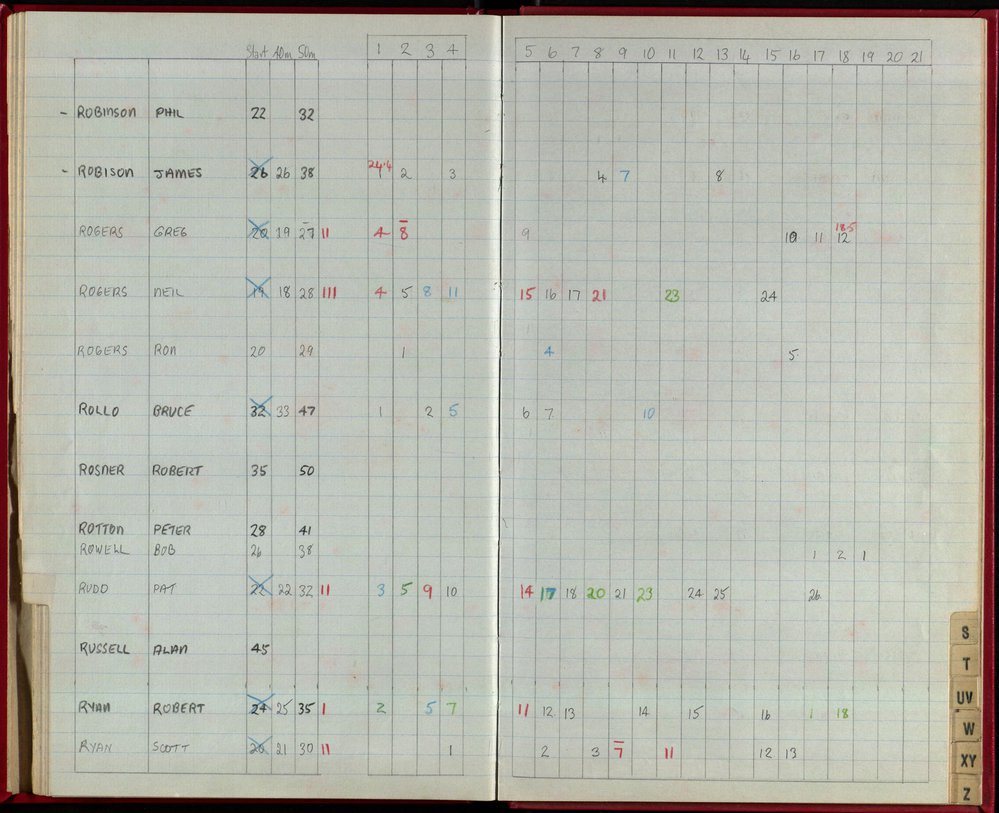 Start 40m 50m 1 2 3 4 5 6 7 8 9 10 11 12 13 14 15 16 17 18 19 20 21
- ROBINSON PHIL 22 32
24.4
- ROBISON JAMES 26 26 38 1 2 3 4 7 8
18.5
ROGERS GREG 20 19 27 11 4 8 9 10 11 12
ROGERS NEIL 19 18 28 111 4 5 8 11 15 16 17 21 23 24
ROGERS RON 20 29 1 4 5
ROLLO BRUCE 32 33 47 1 2 5 6 7 10
ROSNER ROBERT 35 50
ROTTON PETER 28 41
ROWELL BOB 26 38 1 2 1
RUDD PAT 22 22 32 11 3 5 9 10 14 17 18 20 21 23 24 25 26
S
RUSSELL ALAN 45
T
UV
RYAN ROBERT 24 25 35 1 2 5 7 11 12 13 14 15 16 1 18
W
RYAN SCOTT 20 21 30 11 1 2 3 7 11 12 13
XY
Z